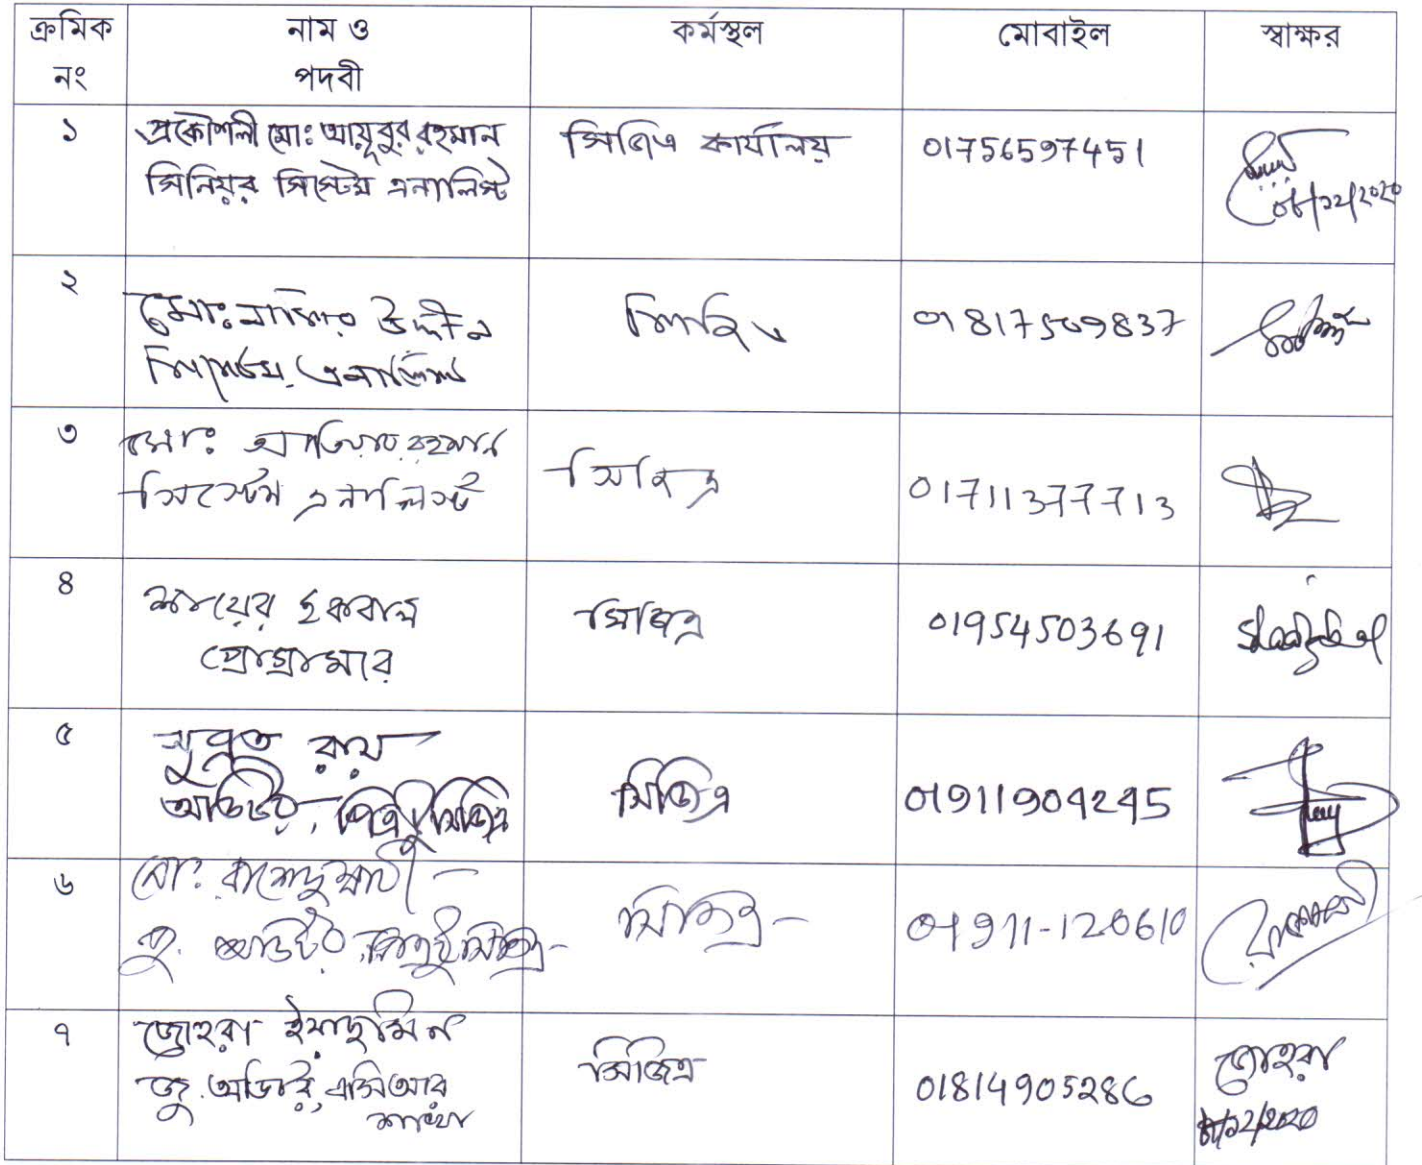 ক্রমিক নং
নাম ও পদবী
কর্মস্থল
মোবাইল
স্বাক্ষর
১
প্রকৌশলী মোঃ আয়ূবুর রহমান
সিনিয়র সিস্টেম এনালিস্ট
সিজিএ কার্যালয়
01756597451
০৮/১২/২০২০
২
মোঃ নাসির উদ্দীন
সিস্টেম এনালিস্ট
সিজিএ
01817509837
৩
মোঃ আতিয়ার রহমান
সিস্টেম এনালিস্ট
সিজিএ
01711377713
৪
শায়ের ইকবাল
প্রোগ্রামার
সিজিএ
01954503691
৫
সুব্রত রায়
অডিটর, সিজিএ
সিজিএ
01911904245
৬
মোঃ
জু. অডিটর,
সিজিএ
01911-120610
৭
জোহরা ইয়াছমিন
জু. অডিটর, এসিআর
শাখা
সিজিএ
01814905286
জোহরা
৮/১২/২০২০